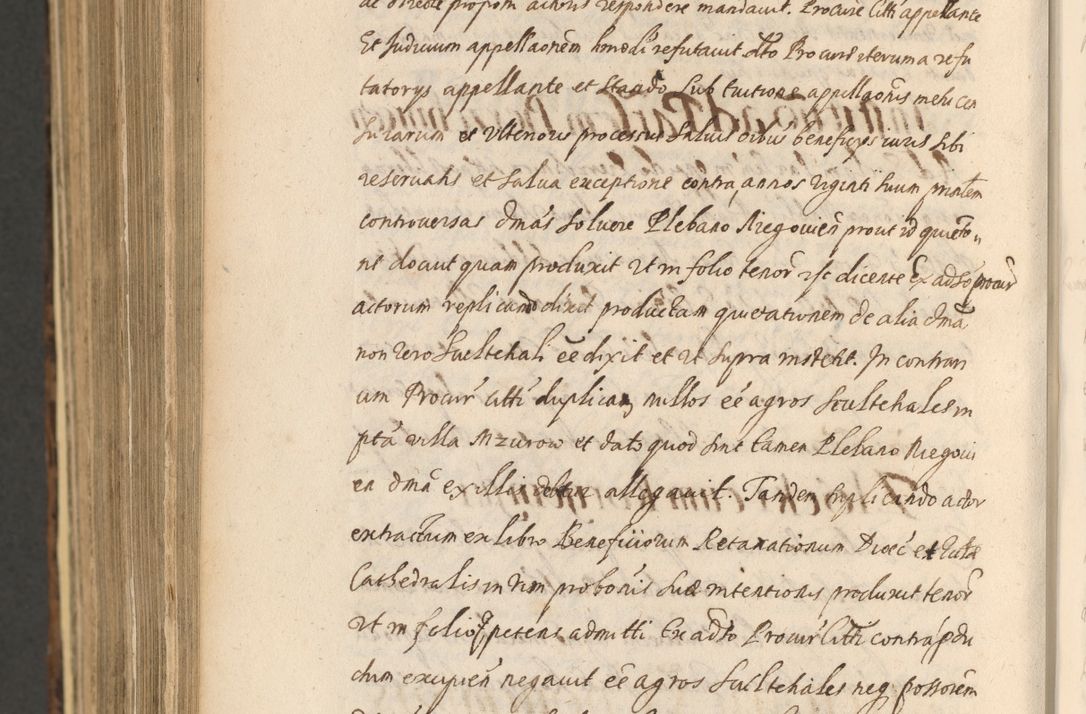 ac directe proposit actoris respondere mandavit. Procur Citti appellante
Et Judicium appellaonem hmodi refutavit dto Procure iterum a refu
tatorys appellante et stando sub tuitione appellaonis metu cen
surarum et ulterioris processus salvis oibus beneficys iuris sibi
reservatis et salva exceptione contra annos viginti suum prntem
controversas dmas soluere Plebano Niegovien prout id quieto„
ne docuit quam produxit ut in folio tenor est dicente Ex adso procur
actorum replicando dixit productam quietationem de alia dma
non vero Scultehali eé dixit et ut supra institit. In contrari
um Procur citti duplicans nullos eé agros Scultehales in
pta villa Mzurow et dato quod sint tamen Plebano Niegovi
en dmã ex illis debere allegavit. Tandem triplicando actor
extractum ex libro Beneficiorum Retaxationum Dioec et Eccla
Cathedralis in vim probonis suæ intentionis produxit tenor
ut in folio petens admitti Ex adso Procur Citti contra pdu
ctum excipien negavit eé agros Scultehales neq possorem